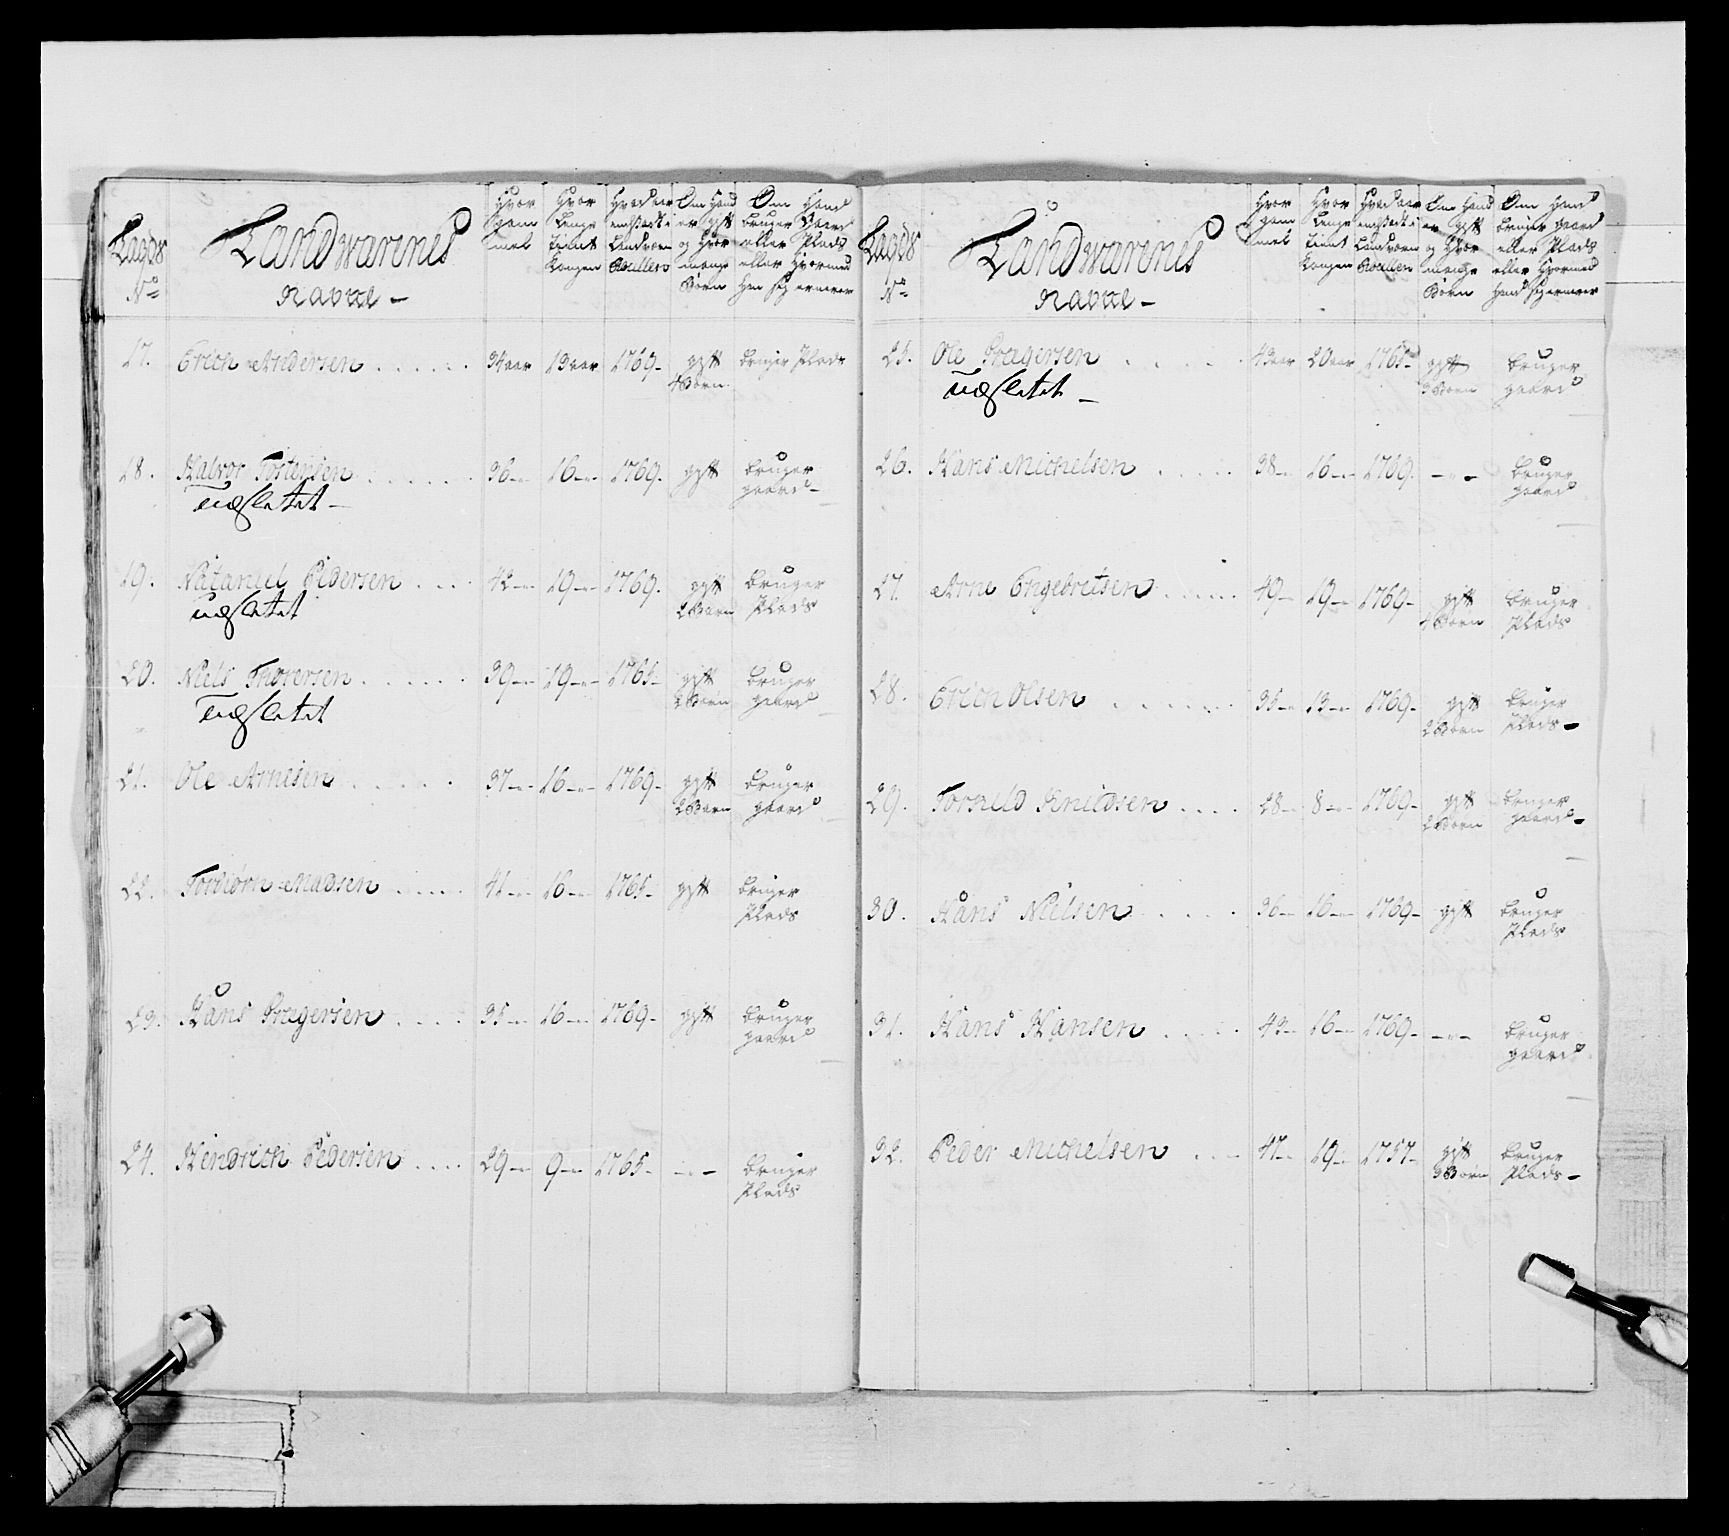 Lægds
No
Landwærnes
Navne -
Hvor
gam
mel
Hvor
Lenge
tient
Kongen
Hvad aar
endstædt i
Landværn
Rullen
Om Hand
er gift
og Hvor
mange
Børn
Om Hand
bruger Gaard
eller Plads
eller Hvormed
Han sig ernerer
17. Erich Andersen 34 aar 13 aar 1769- gift bruger Plads
4 Børn
18. Halvor Tostensen 36 16 1769. gift bruger
udsletet - gaard -
19. Natanael Pedersen 42 19 1769. gift bruger
udsletet 2 Børn Plads
20. Niels Thoresen 39 19 1765- gift bruger
udsletet 2 Børn gaard
21. Ole Arnesen 37 16 1769- gift bruger
2 Børn gaard
22. Torbiørn Madsen 41 16 1765- gift bruger
Plads
23. Hans Gregersen 35 16 1769- gift bruger
gaard
24. Hendrich Pedersen 29 9 1765- - " - bruger
Plads
Lægds
No
Landwærnes
Navne -
Hvor
gam
mel
Hvor
Lenge
tient
Kongen
Hvad aar
endstædt i
Landværn
Rullen
Om Hand
er gift
og Hvor
mange
Børn
Om Hand
bruger gaard
eller Plads
eller Hvormed
Hand sig ernerer
25. Ole Gregersen 43 aar 20 aar 1765- gift bruger
udsletet - 3 Børn gaard
26. Hans Michelsen 38 16 1769. - " - bruger
gaard
27. Arne Engebretsen 49 19 1769- gift bruger
4 Børn Plads
28. Erich Olsen 35 13 1769- gift bruger
2 Børn Plads -
29. Torkild Knudsen 28 8 1769- gift bruger
2 Børn gaard -
30. Hans Nielsen 36 16 1769- gift bruger
Plads
31. Hans Hansen 43 16 1769- - " - bruger
gaard
32. Peder Michelsen 47 19 1757- gift bruger
3 Børn Plads -